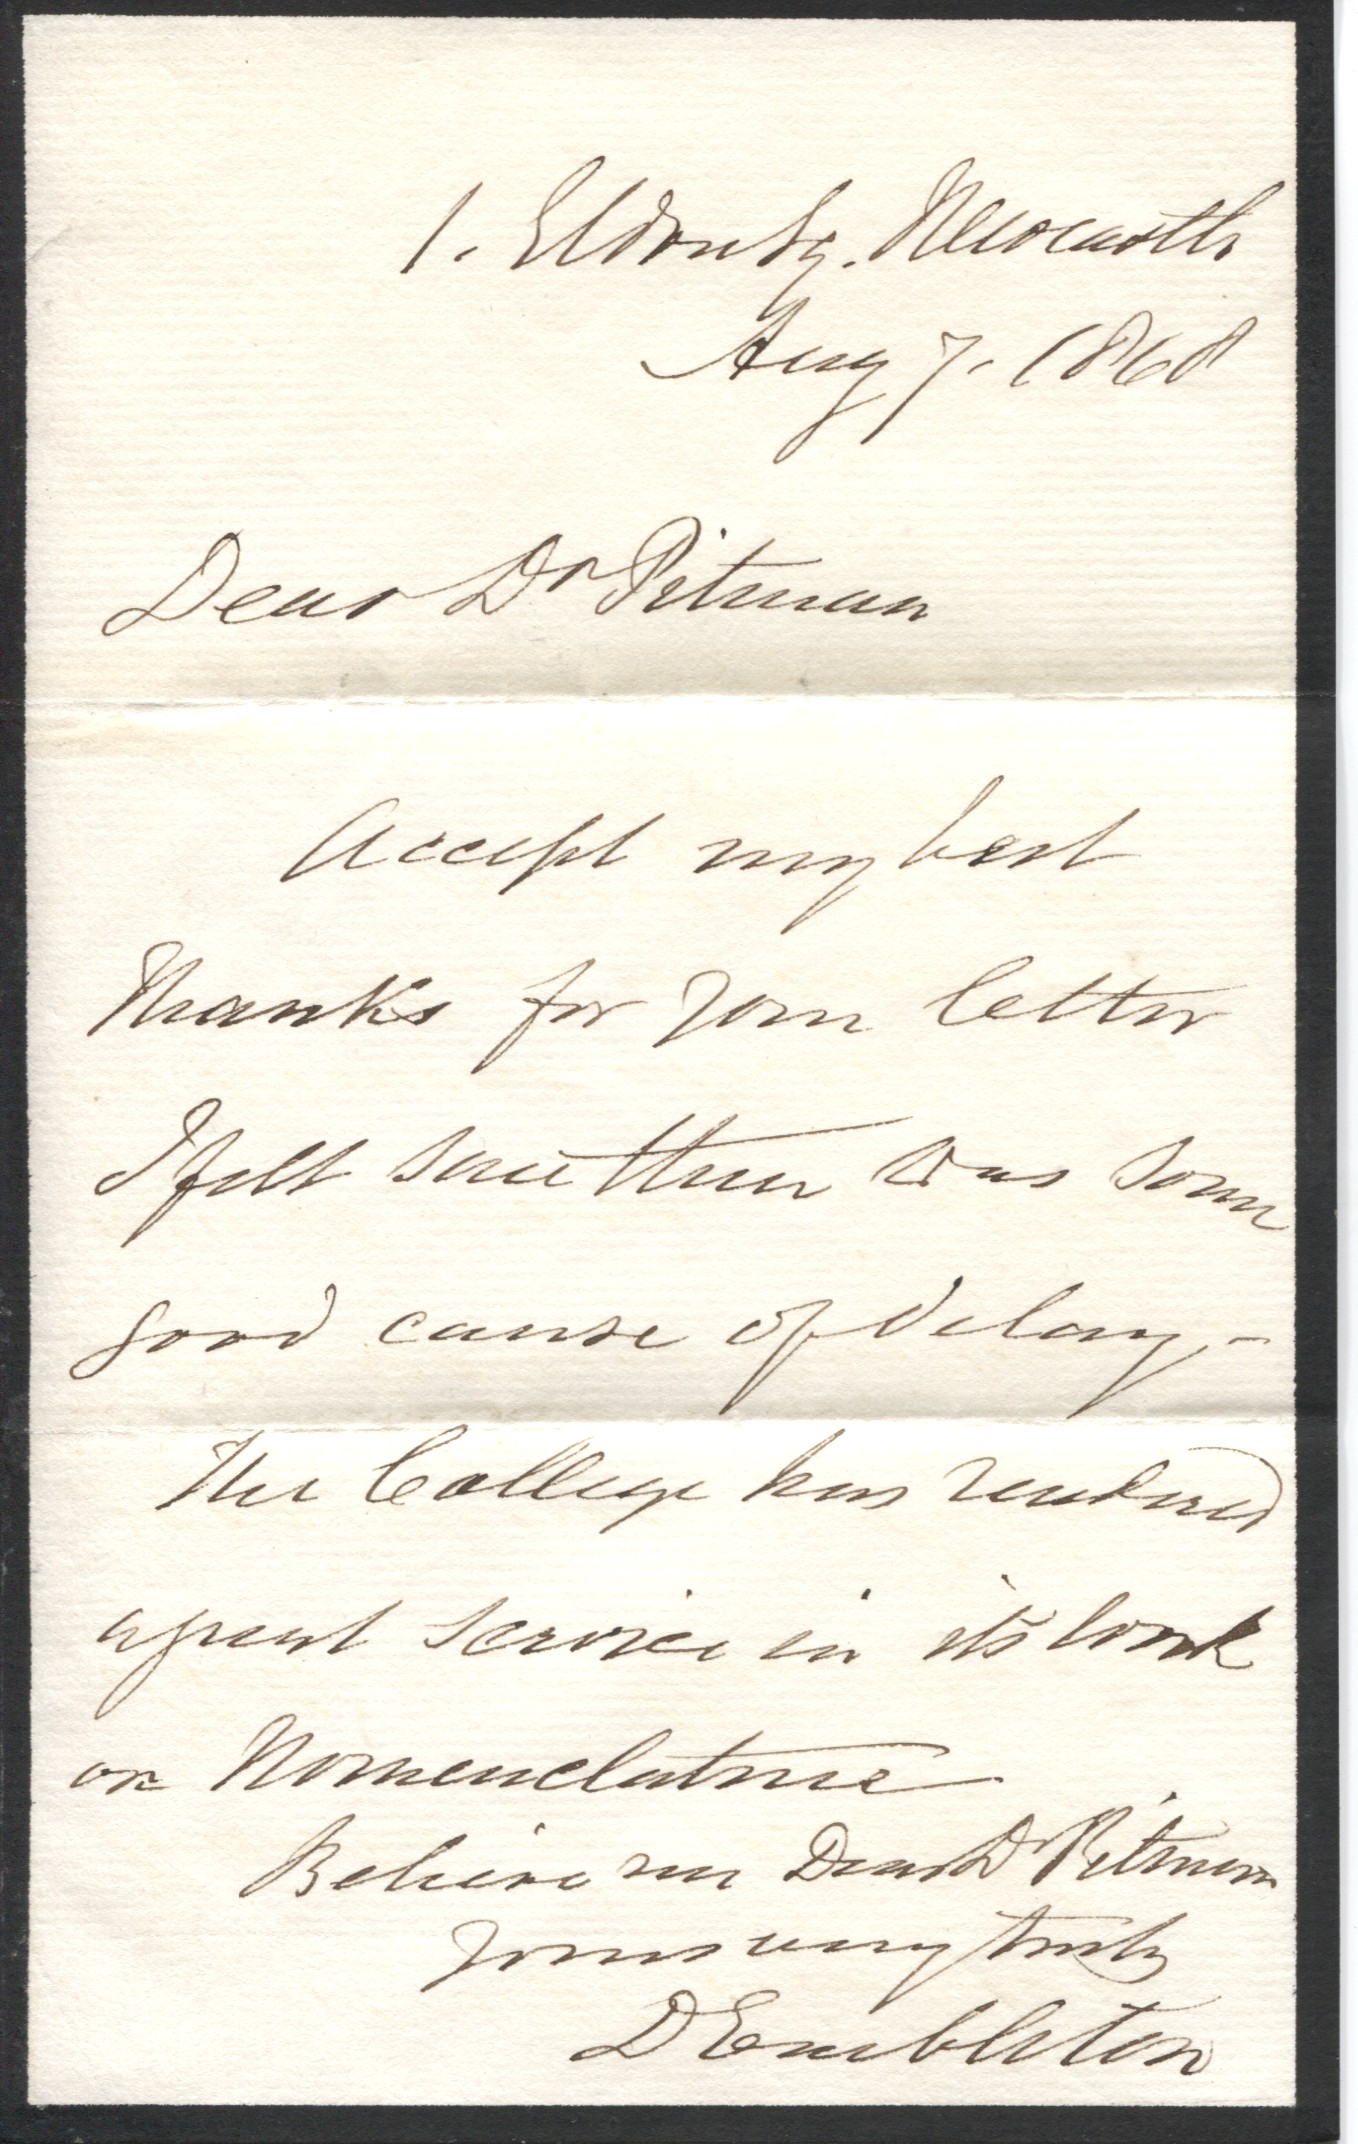 1. Eldon Sq. Newcastle
Aug 7. 1868
Dear Dr Pitman
Accept my best
thanks for your letter
I felt sure there was some
good cause of delay -
The College has rendered
a great service in its work
on Nomenclature
Believe me Dear Dr Pitman
Yours very truly
D Embleton